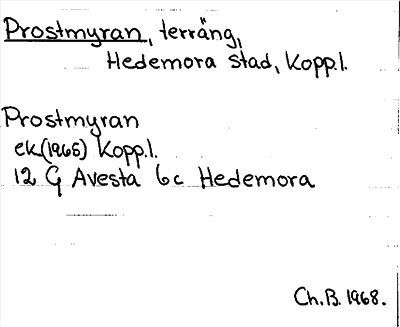 Prostmyran, terräng,
Hedemora stad, Kopp.l.
Prostmyran
ek.(1965) Kopp.l.
12 G Avesta 6c Hedemora
Ch.B. 1968.